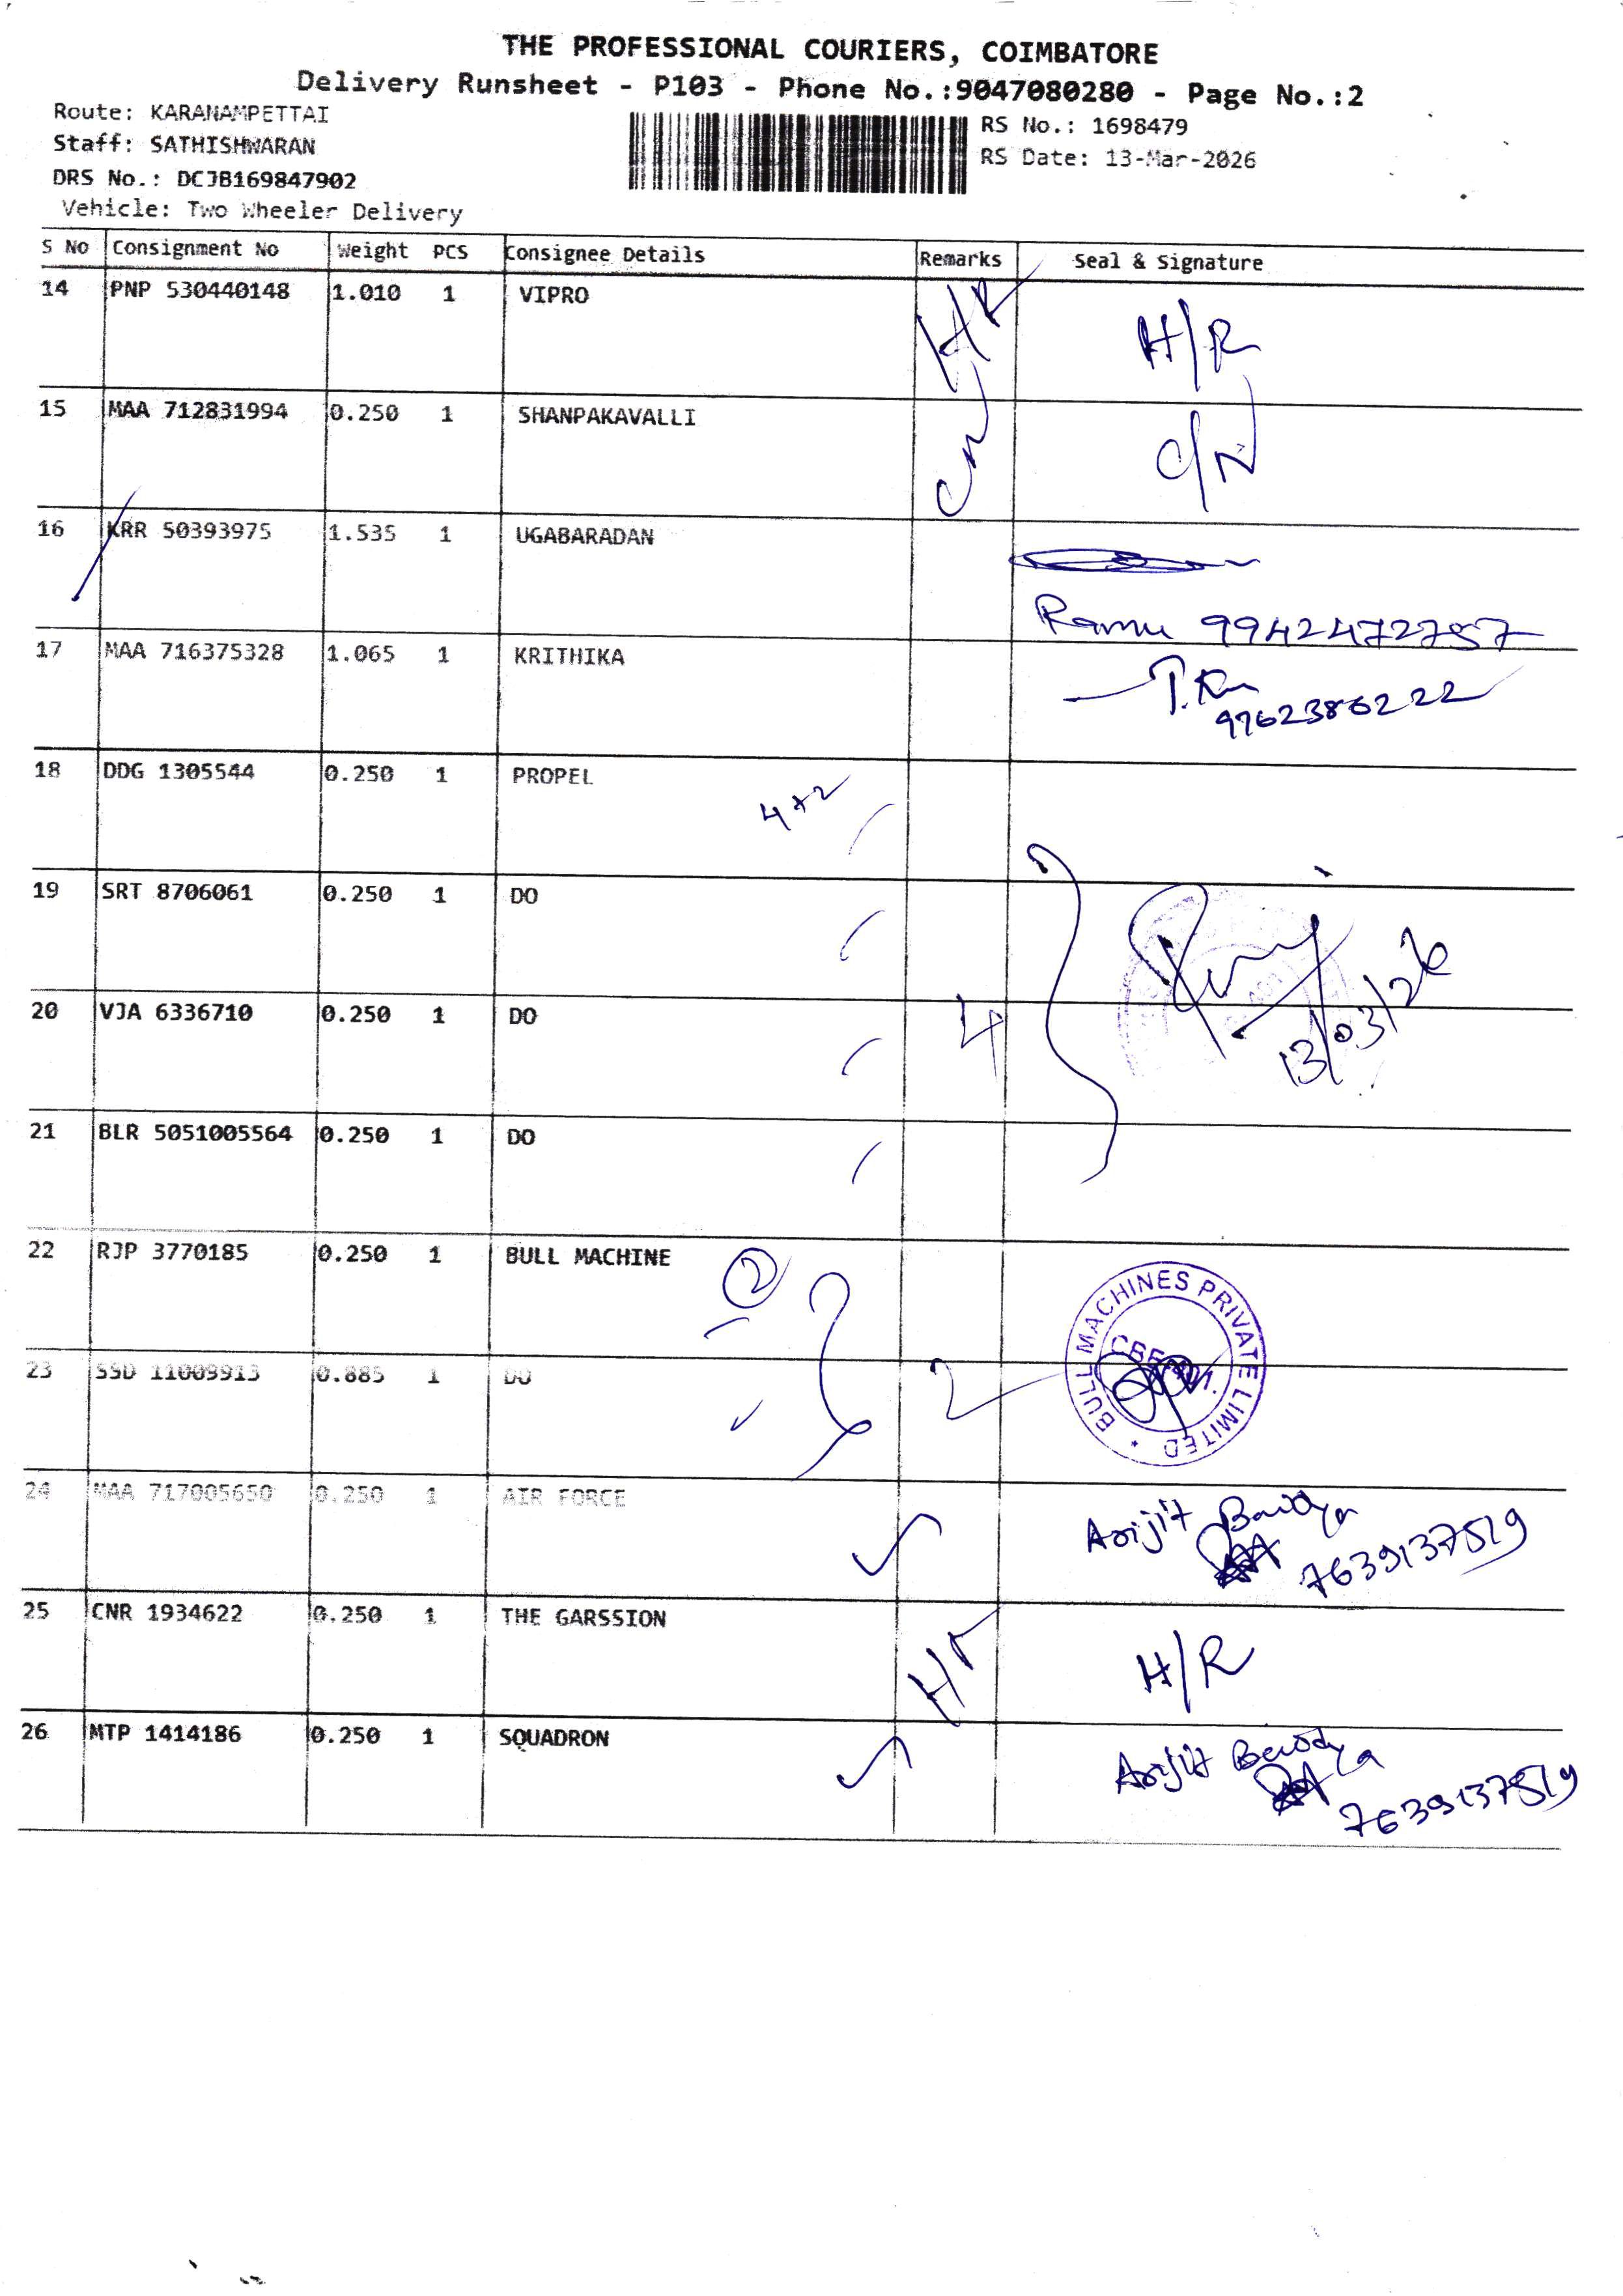 THE PROFESSIONAL COURIERS, COIMBATORE
Delivery Runsheet - P103 - Phone No.:9047080280 - Page No.:2
Route: KARANAMPETTAI
Staff: SATHISHWARAN
DRS No.: DCJB169847902
Vehicle: Two Wheeler Delivery
RS No.: 1698479
RS Date: 13-Mar-2026
S No Consignment No Weight PCS Consignee Details Remarks Seal & Signature
14 PNP 530440148 1.010 1 VIPRO H/R H/R
15 MAA 712831994 0.250 1 SHANPAKAVALLI C/N C/N
16 KRR 50393975 1.535 1 UGABARADAN
Ramu 9942472757
17 MAA 716375328 1.065 1 KRITHIKA
9762386222
18 DDG 1305544 0.250 1 PROPEL 4+2
19 SRT 8706061 0.250 1 DO
20 VJA 6336710 0.250 1 DO 4 13/03/26
21 BLR 5051005564 0.250 1 DO
22 RJP 3770185 0.250 1 BULL MACHINE 2
BULL MACHINES PRIVATE LIMITED
23 SSD 11009913 0.885 1 DO 2
24 MAA 717005650 0.250 1 AIR FORCE Arijit Baidya
7639137519
25 CNR 1934622 0.250 1 THE GARSSION H/R H/R
26 MTP 1414186 0.250 1 SQUADRON Arijit Baidya
7639137519